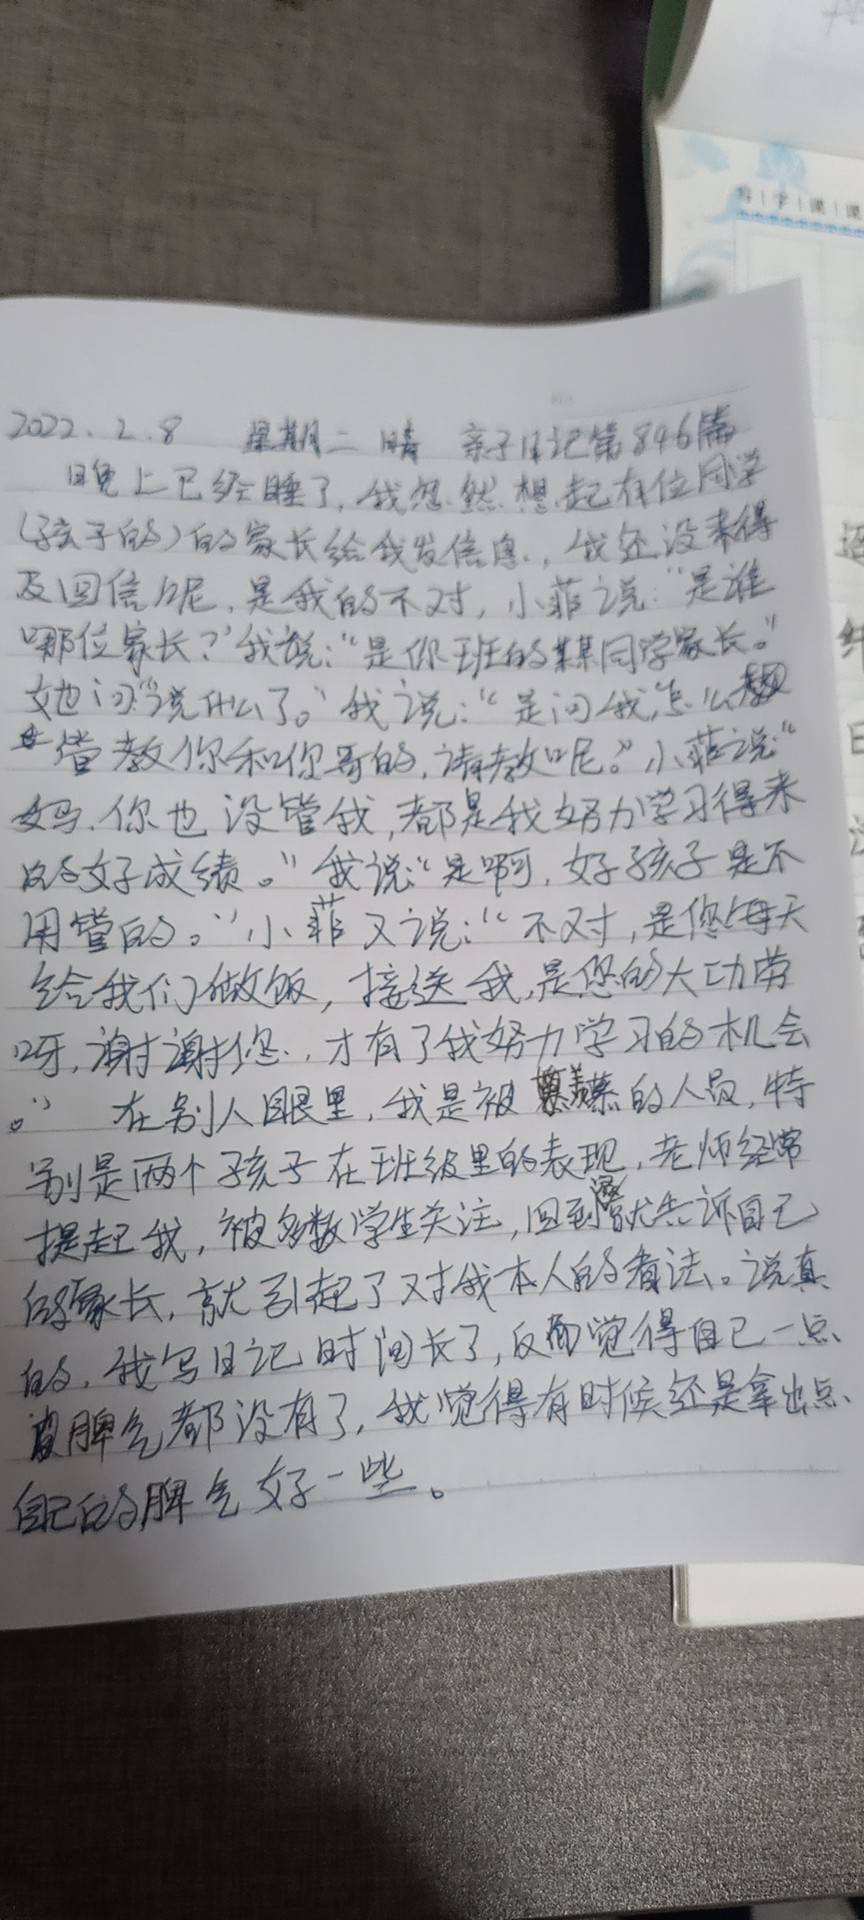 2022.2.8 星期二 晴 亲子日记第846篇
晚上已经睡了,我忽然想起有位同学
(孩子的)的家长给我发信息,我还没来得
及回信呢,是我的不对,小菲说:“是谁
哪位家长?”我说:“是你班的某某同学家长。”
她问“说什么了。”我说:“是问我,怎么
管教你和你哥的,请教呢。”小菲说“
妈,你也没管我,都是我努力学习得来
的好成绩。”我说:“是啊,好孩子是不
用管的。”小菲又说:“不对,是您每天
给我们做饭,接送我,是您的大功劳
呀,谢谢您,才有了我努力学习的机会
。” 在别人眼里,我是被羡慕的人员,特
别是两个孩子在班级里的表现,老师经常
提起我,被多数学生关注,回到家就告诉自己
的家长,就引起了对我本人的看法。说真
的,我写日记时间长了,反而觉得自己一点
脾气都没有了,我觉得有时候还是拿出点
自己的脾气好一些。